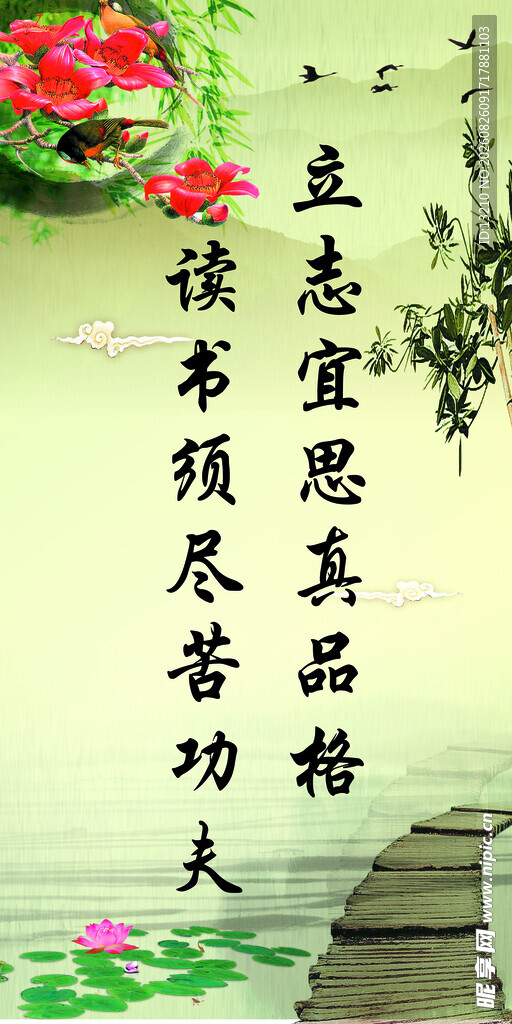 立志宜思真品格
读书须尽苦功夫
昵享网 www.nipic.cn
ID:13210 NO:20260826091717881103